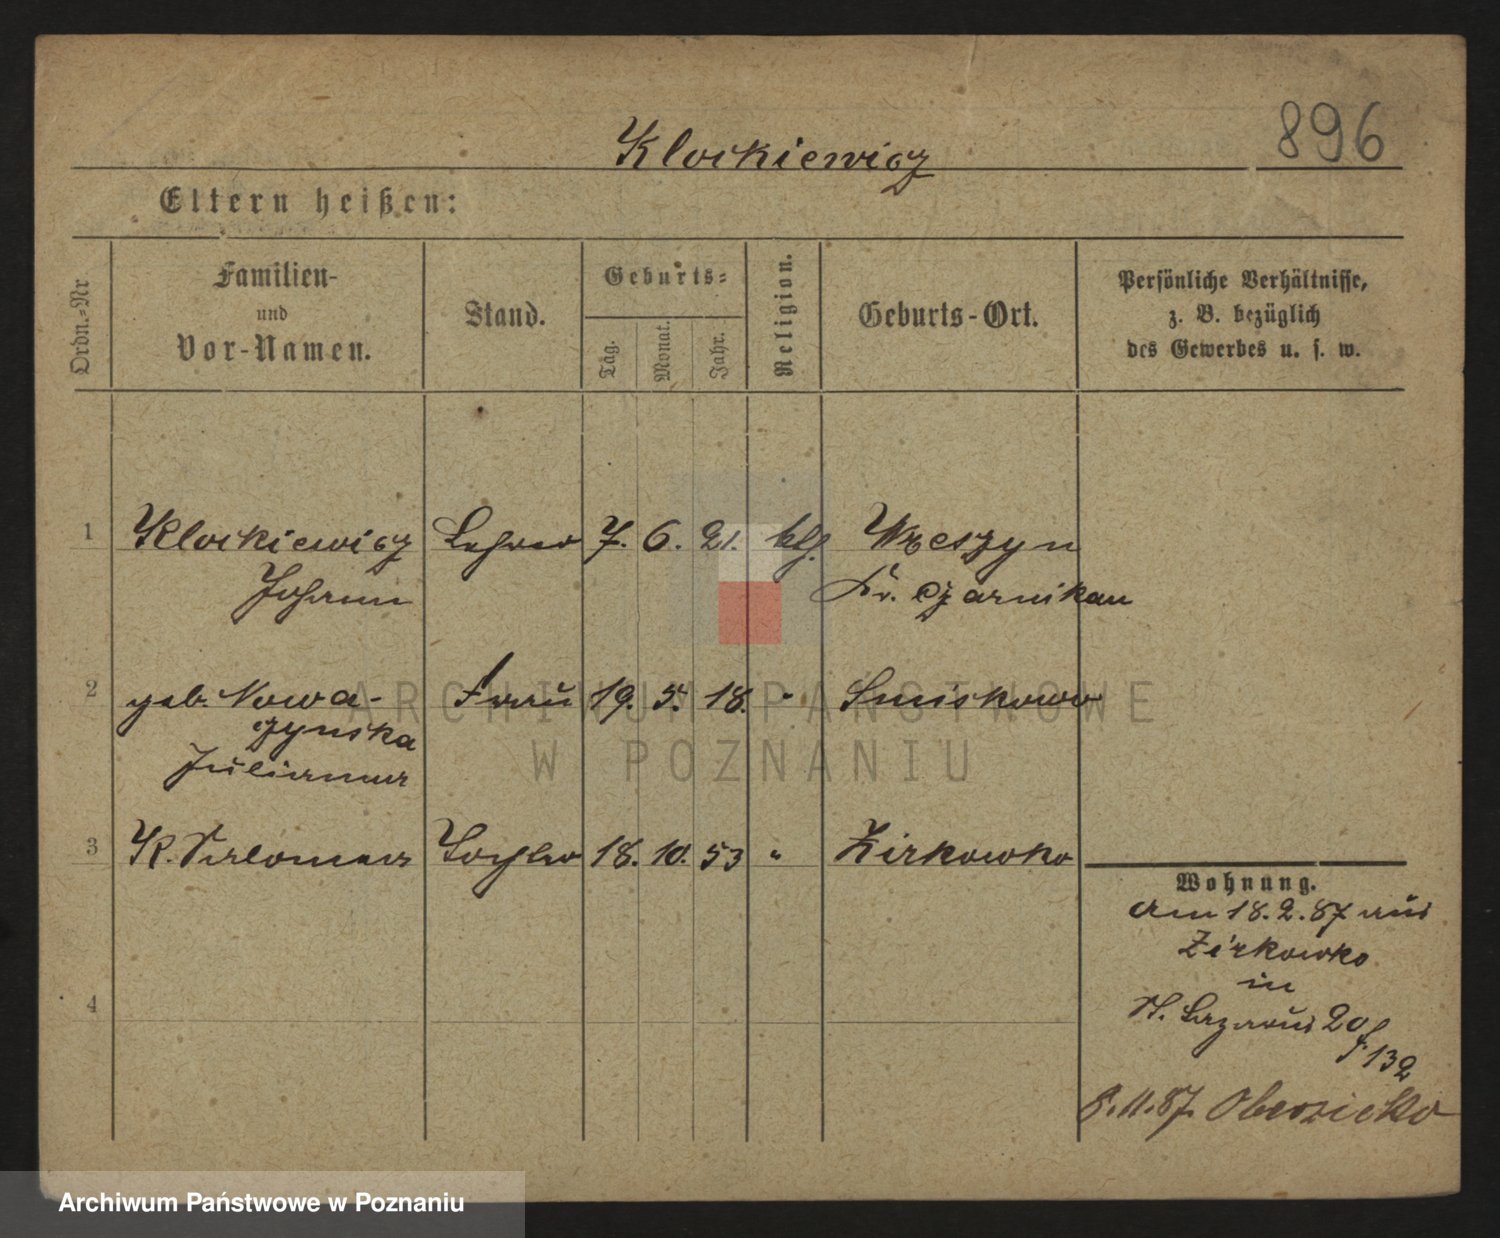 896
Klockiewicz
Eltern heißen:
Ordn.-Nr
Familien-
und
Vor-Namen.
Stand.
Geburts-
Tag.
Monat.
Jahr.
Religion.
Geburts-Ort.
Persönliche Verhältnisse,
z. B. bezüglich
des Gewerbes u. s. w.
1 Klockiewicz Lehrer 7. 6. 21. kth. Wrzeszyn
Johann Kr. Czarnikau
2 geb. Nowa- Frau 19. 5. 18. " Smiskowo
czynska
Julianna
3 K. Salomea Tochter 18. 10. 53 " Zirkowko
Wohnung.
Am 18.2.87 aus
Zirkowko
in
St. Lazarus 20
f. 132
4
8.11.87. Obersitzko
ARCHIWUM PAŃSTWOWE
W POZNANIU
Archiwum Państwowe w Poznaniu